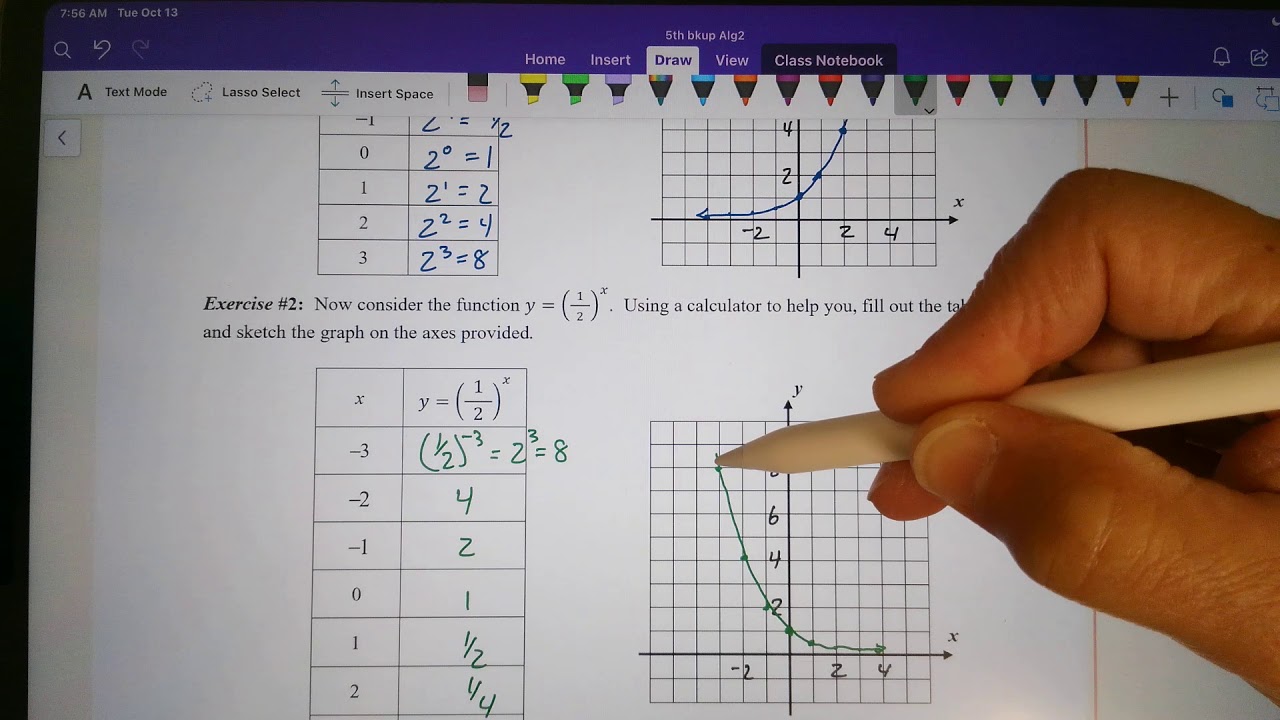 7:56 AM Tue Oct 13
5th bkup Alg2
Home Insert Draw View Class Notebook
A Text Mode Lasso Select Insert Space
-1 = 1/2
0 2⁰ = 1
1 2¹ = 2
2 2² = 4
3 2³ = 8
4
2
-2 2 4
x
Exercise #2: Now consider the function y = (1/2)ˣ. Using a calculator to help you, fill out the
and sketch the graph on the axes provided.
x y = (1/2)ˣ
-3 (1/2)⁻³ = 2³ = 8
-2 4
-1 2
0 1
1 1/2
2 1/4
y
6
4
2
-2 2 4
x